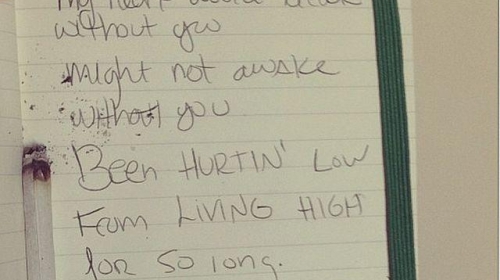 my heart would break
without you
might not awake
without you
Been HURTIN' Low
From LIVING HIGH
for so long.